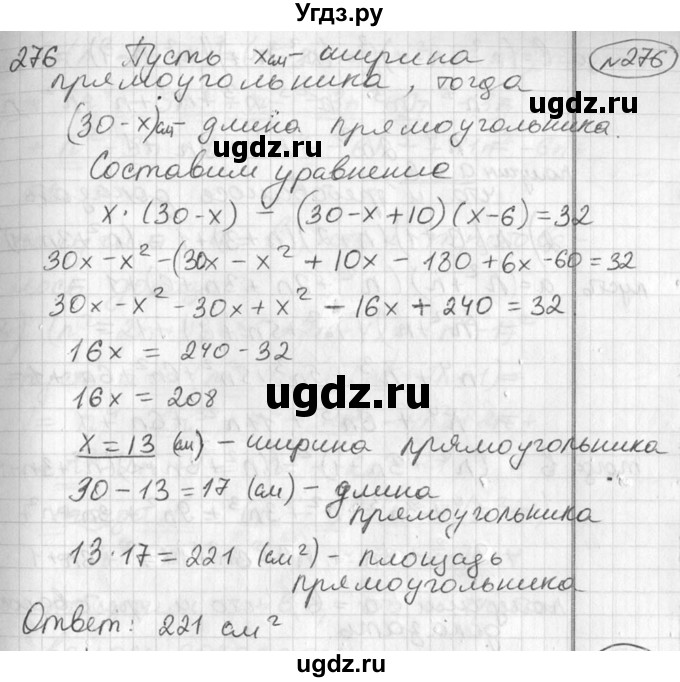 Угдз.ру
276 Пусть x см - ширина №276
прямоугольника, тогда
(30-x) см - длина прямоугольника.
ugdz.ru ugdz.ru
Составим уравнение
x · (30-x) - (30-x+10)(x-6) = 32
30x-x²-(30x-x²+10x-180+6x-60=32
30x-x²-30x+x²-16x+240=32
16x = 240-32
16x = 208
ugdz.ru ugdz.ru
x=13 (см) - ширина прямоугольника
30-13=17 (см) - длина
прямоугольника
13·17=221 (см²) - площадь
ugdz.ru ugdz.ru
прямоугольника
Ответ: 221 см²
ugdz.ru